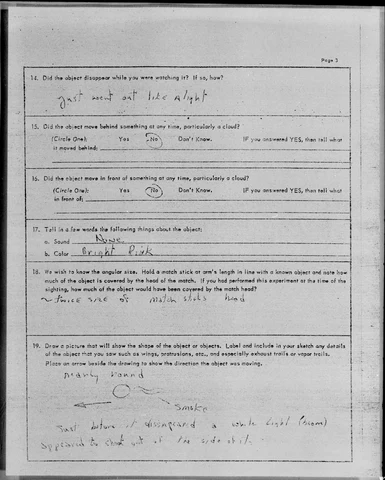 Page 3
14. Did the object disappear while you were watching it? If so, how?
Just went out like a light
15. Did the object move behind something at any time, particularly a cloud?
(Circle One): Yes No Don't Know. IF you answered YES, then tell what
it moved behind:
16. Did the object move in front of something at any time, particularly a cloud?
(Circle One): Yes No Don't Know. IF you answered YES, then tell what
in front of:
17. Tell in a few words the following things about the object:
a. Sound None
b. Color Bright Pink
18. We wish to know the angular size. Hold a match stick at arm's length in line with a known object and note how
much of the object is covered by the head of the match. If you had performed this experiment at the time of the
sighting, how much of the object would have been covered by the match head?
~ twice size of match sticks head
19. Draw a picture that will show the shape of the object or objects. Label and include in your sketch any details
of the object that you saw such as wings, protrusions, etc., and especially exhaust trails or vapor trails.
Place an arrow beside the drawing to show the direction the object was moving.
round
smoke
Just before it disappeared a white light (beam)
appeared to shoot out of the side of it.